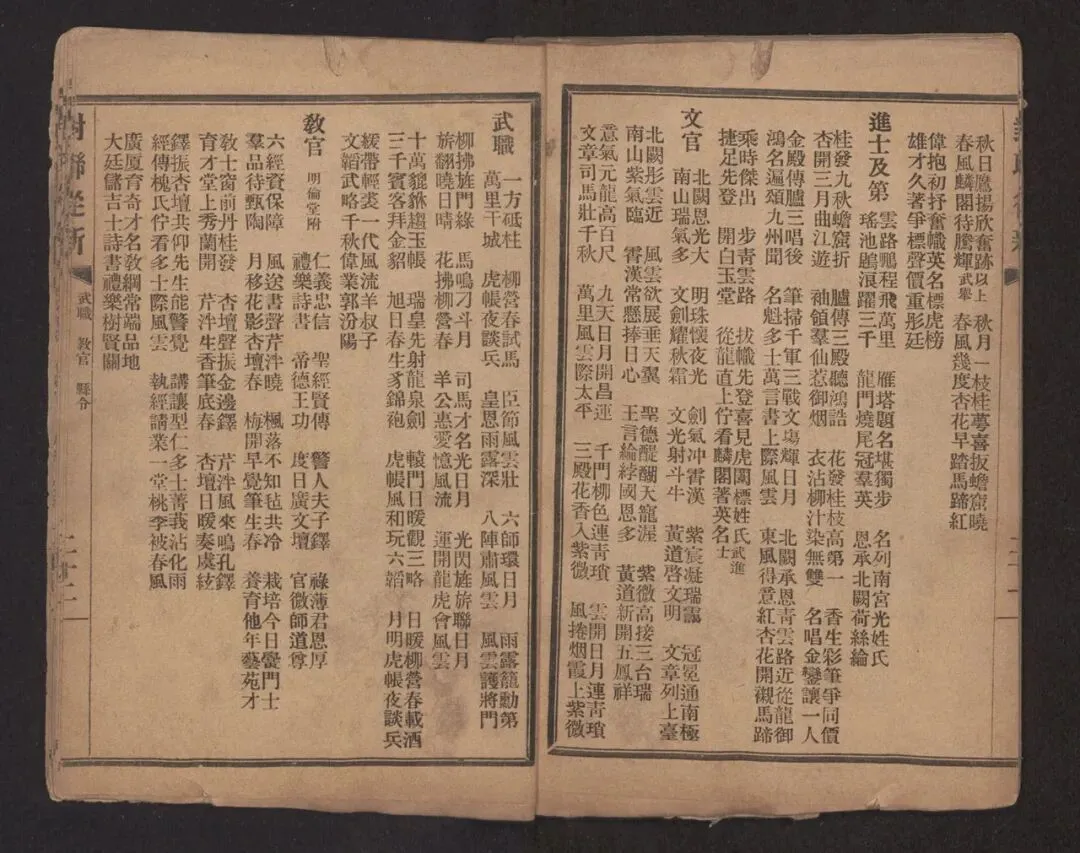 秋日鷹揚欣奮跡以上 秋月一枝桂蕚喜扳蟾窟曉
春風麟閣待騰輝武舉 春風幾度杏花早踏馬蹄紅
偉抱初抒奮幟英名標虎榜
雄才久著爭標聲價重彤廷
進士及第 雲路鵬程飛萬里 雁塔題名堪獨步 名列南宮光姓氏
瑤池浪躍三千 龍門燒尾冠羣英 恩承北闕荷絲綸
桂發九秋蟾窟折 臚傳三殿聽鴻誥 花發桂枝高第一 香生彩筆爭同價
杏開三月曲江遊 袖領羣仙惹御烟 衣沾柳汁染無雙 名唱金鑾讓一人
金殿傳臚三唱後 筆掃千軍三戰文塲輝日月 北闕承恩青雲路近從龍御
鴻名遍頌九州聞 名魁多士萬言書上際風雲 東風得意紅杏花開觀馬蹄
乘時傑出 步青雲路 拔幟先登喜見虎闈標姓氏武進
捷足先登 開白玉堂 從龍直上佇看麟閣著英名士
文官 北闕恩光大 明珠懷夜光 劍氣冲霄漢 紫宸凝瑞靄 冠冕通南極
南山瑞氣多 文劍耀秋霜 文光射斗牛 黃道啓文明 文章列上臺
北闕彤雲近 風雲欲展垂天翼 聖德醍醐大寵渥 紫微高接三台瑞
南山紫氣臨 霄漢常懸捧日心 王言綸綍國恩多 黃道新開五鳳祥
意氣元龍高百尺 九天日月開昌運 千門柳色連青瑣 雲開日月連青瑣
文章司馬壯千秋 萬里風雲際太平 三殿花香入紫微 風捲烟霞上紫微
武職 一方砥柱 柳營春試馬 臣節風雲壯 六師環日月 雨露籠勳第
萬里干城 虎帳夜談兵 皇恩雨露深 八陣肅風雲 風雲護將門
柳拂旌門綠 馬鳴刁斗月 司馬才名光日月 光閃旌旂聯日月
旂翻曉日晴 花拂柳營春 羊公惠愛憶風流 運開龍虎會風雲
十萬貔貅趨玉帳 瑞皇先射龍泉劍 轅門日暖觀三略 日暖柳營春載酒
三千賓客拜金貂 旭日春生豸錦袍 虎帳風和玩六韜 月明虎帳夜談兵
緩帶輕裘一代風流羊叔子
文韜武略千秋偉業郭汾陽
教官 明倫堂附 仁義忠信 聖經賢傳 警人夫子鐸 祿薄君恩厚
禮樂詩書 帝德王功 度日廣文壇 官微師道尊
六經資保障 風送書聲芹泮曉 楓落不知毡共冷 栽培今日黌門士
羣品待甄陶 月移花影杏壇春 梅開早覺筆生春 養育他年藝苑才
敎士窗前丹桂發 杏壇聲振金邊鐸 芹泮風來鳴孔鐸
育才堂上秀蘭開 芹泮生香筆底春 杏壇日暖奏虞絃
鐸振杏壇共仰先生能警覺 講讓型仁多士菁莪沾化雨
經傳槐氏佇看多士際風雲 執經請業一堂桃李被春風
廣厦育奇才名敎綱常端品地
大廷儲吉士詩書禮樂樹賢關
對聯從新 武職 教官 縣令 二十二